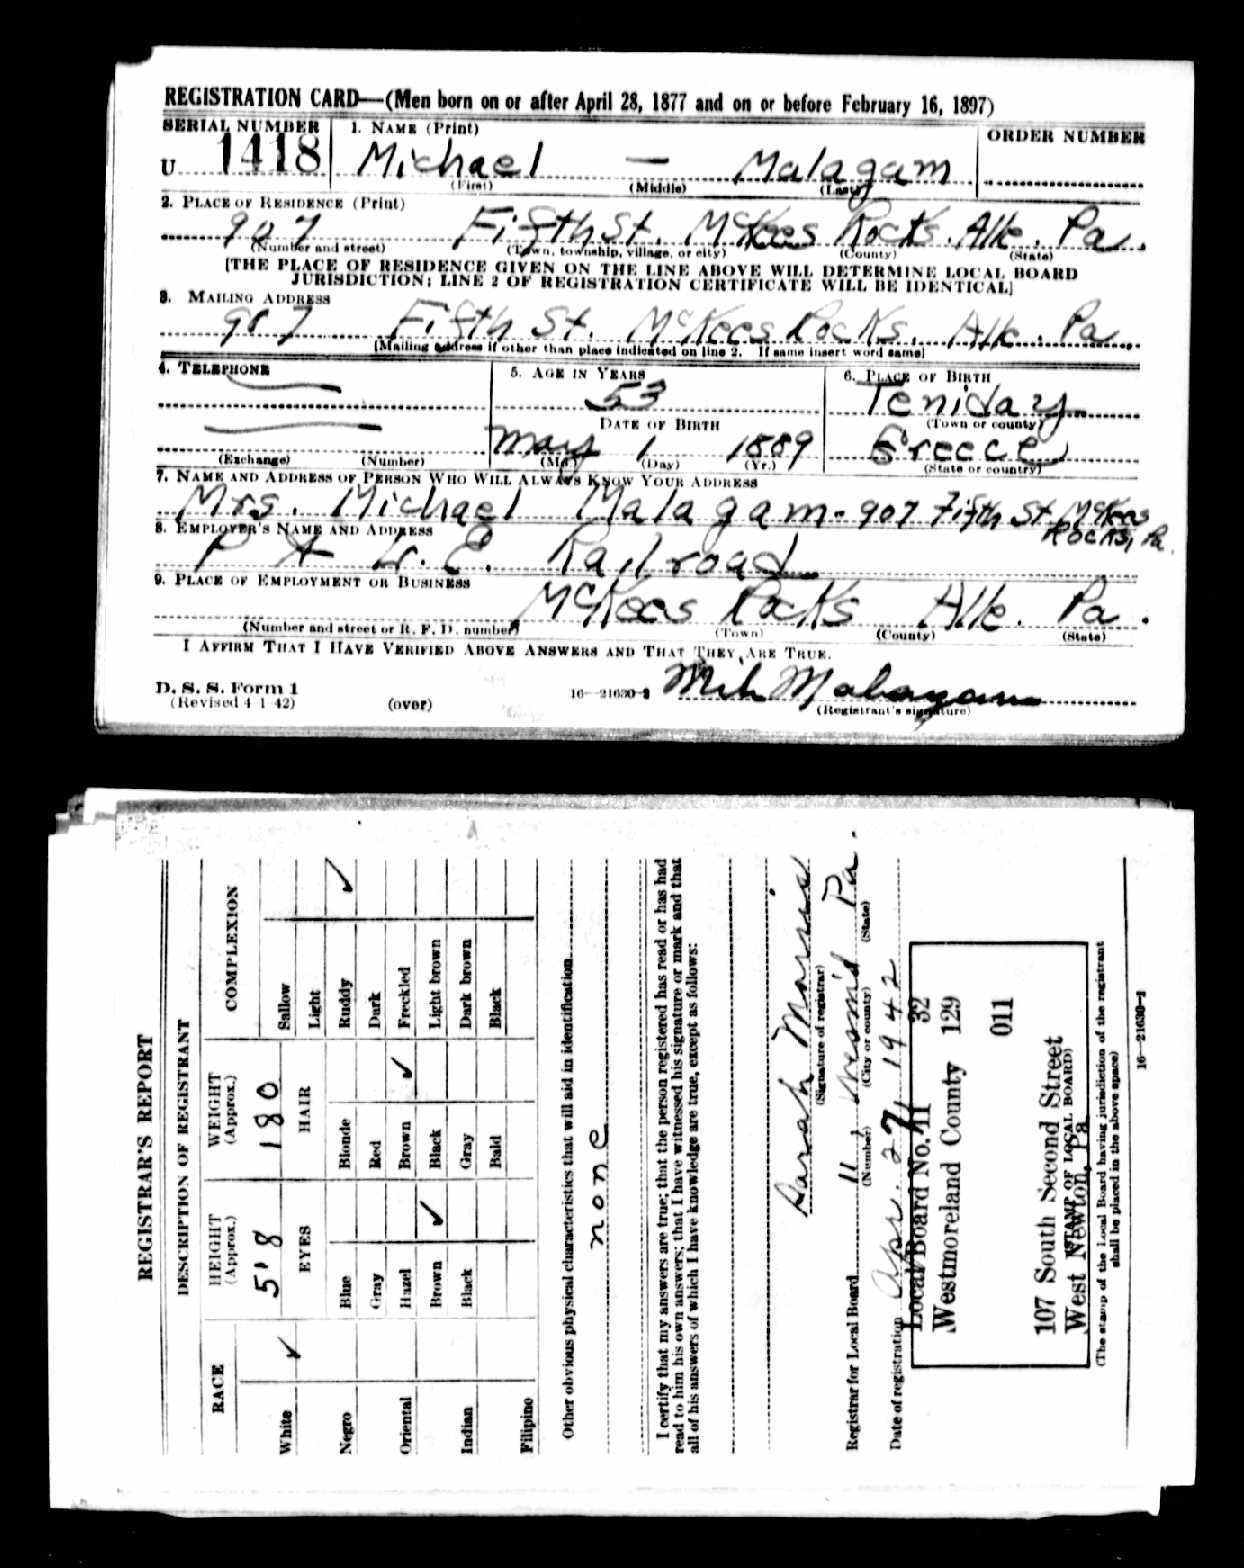 REGISTRATION CARD—(Men born on or after April 28, 1877 and on or before February 16, 1897)
SERIAL NUMBER 1. NAME (Print) ORDER NUMBER
U 1418 Michael — Malagam
(First) (Middle) (Last)
2. PLACE OF RESIDENCE (Print)
907 Fifth St. McKees Rocks. Alle. Pa.
(Number and street) (Town, township, village, or city) (County) (State)
[THE PLACE OF RESIDENCE GIVEN ON THE LINE ABOVE WILL DETERMINE LOCAL BOARD
JURISDICTION; LINE 2 OF REGISTRATION CERTIFICATE WILL BE IDENTICAL]
3. MAILING ADDRESS
907 Fifth St. McKees Rocks. Alle. Pa.
[Mailing address if other than place indicated on line 2. If same insert word same]
4. TELEPHONE 5. AGE IN YEARS 6. PLACE OF BIRTH
53 Teniday
DATE OF BIRTH (Town or county)
May 1 1889 Greece
(Exchange) (Number) (Mo.) (Day) (Yr.) (State or country)
7. NAME AND ADDRESS OF PERSON WHO WILL ALWAYS KNOW YOUR ADDRESS
Mrs. Michael Malagam - 907 Fifth St McKees
Rocks, Pa.
8. EMPLOYER'S NAME AND ADDRESS
P. & L. E. Railroad
9. PLACE OF EMPLOYMENT OR BUSINESS
McKees Rocks Alle. Pa.
(Number and street or R. F. D. number) (Town) (County) (State)
I AFFIRM THAT I HAVE VERIFIED ABOVE ANSWERS AND THAT THEY ARE TRUE.
D. S. S. Form 1
(Revised 4-1-42) (over) 16—21630-2 Mik Malagam
(Registrant's signature)
REGISTRAR'S REPORT
DESCRIPTION OF REGISTRANT
RACE HEIGHT (Approx.) WEIGHT (Approx.) COMPLEXION
5'8 180
White ✓ Sallow
EYES HAIR Light
Negro Blue Blonde Ruddy ✓
Gray Red Dark
Oriental Hazel Brown ✓ Freckled
Brown ✓ Black Light brown
Indian Black Gray Dark brown
Bald Black
Filipino
Other obvious physical characteristics that will aid in identification
none
I certify that my answers are true; that the person registered has read or has had
read to him his own answers; that I have witnessed his signature or mark and that
all of his answers of which I have knowledge are true, except as follows:
Sarah Morris
(Signature of registrar)
Registrar for Local Board 11 Wesm'd Pa.
(Number) (City or county) (State)
Date of registration Apr. 27, 1942
Local Board No. 11 32
Westmoreland County 129
011
107 South Second Street
West Newton, Pa
(STAMP OF LOCAL BOARD)
(The stamp of the Local Board having jurisdiction of the registrant
shall be placed in the above space)
16—21630-2